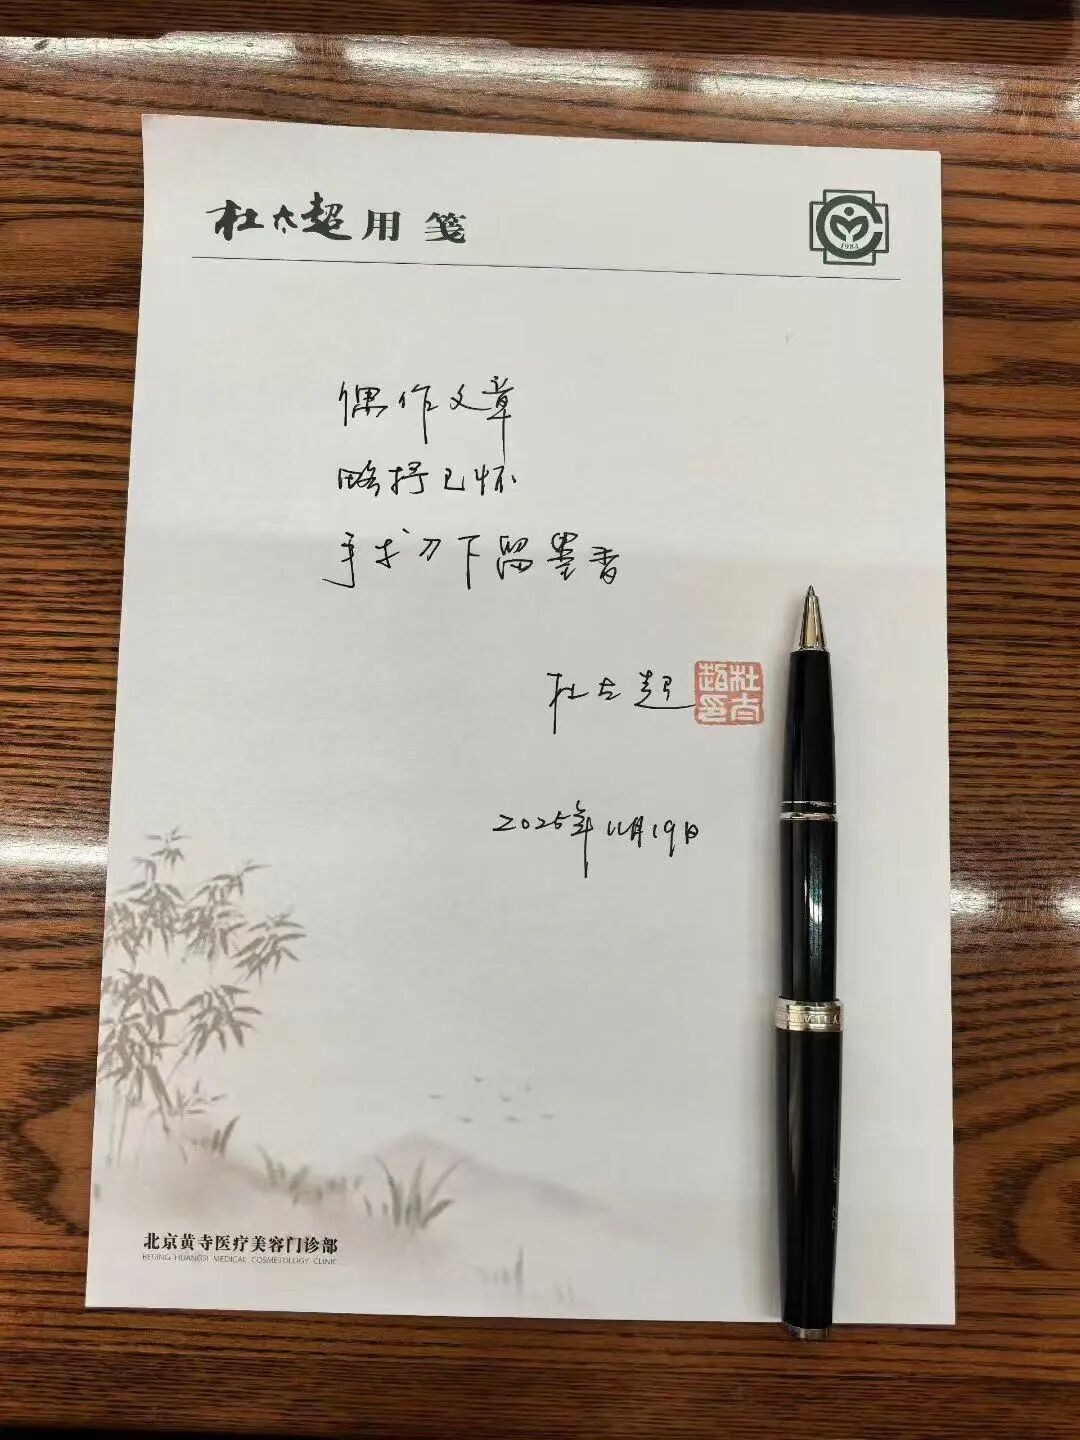 杜太超用笺
1984
偶作文章
略抒己怀
手术刀下留墨香
杜太超
杜太超印
2025年11月19日
北京黄寺医疗美容门诊部
BEIJING HUANGSI MEDICAL COSMETOLOGY CLINIC